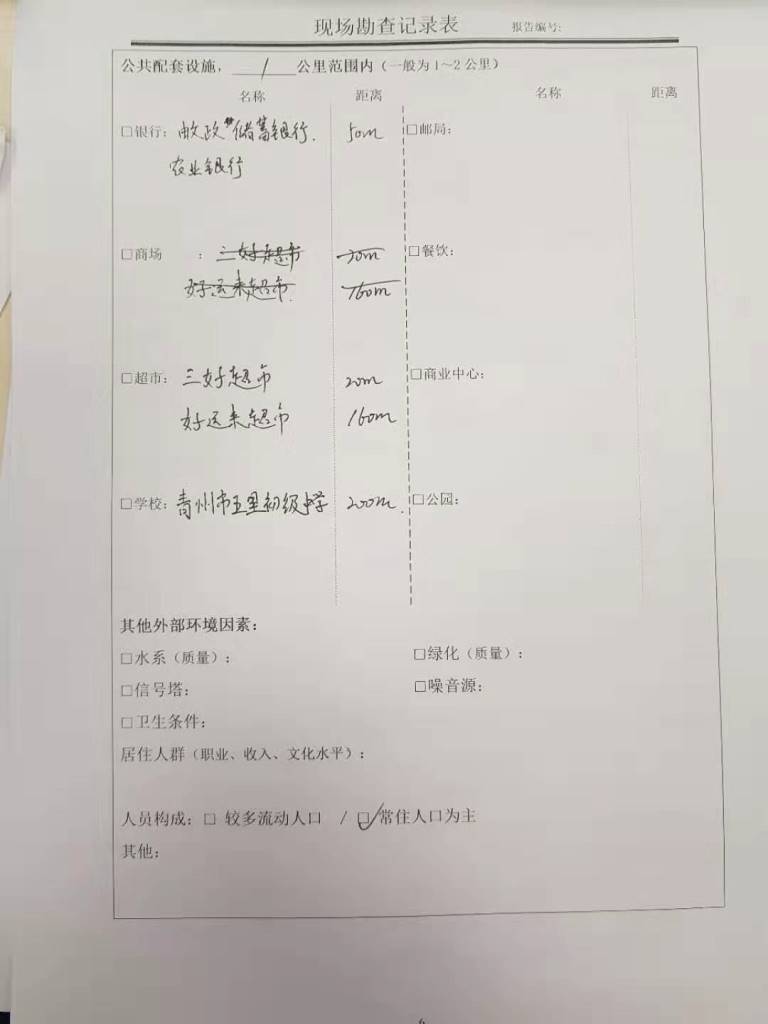 现场勘查记录表 报告编号:
公共配套设施, / 公里范围内（一般为1~2公里）
名称 距离 名称 距离
□银行: 邮政储蓄银行. 50m □邮局:
农业银行
□商场 : 三好超市 20m □餐饮:
好运来超市. 160m
□超市: 三好超市 20m □商业中心:
好运来超市 160m
□学校: 青州市五里初级中学 200m. □公园:
其他外部环境因素:
□水系（质量）: □绿化（质量）:
□信号塔: □噪音源:
□卫生条件:
居住人群（职业、收入、文化水平）:
人员构成: □ 较多流动人口 / ☑常住人口为主
其他:
6